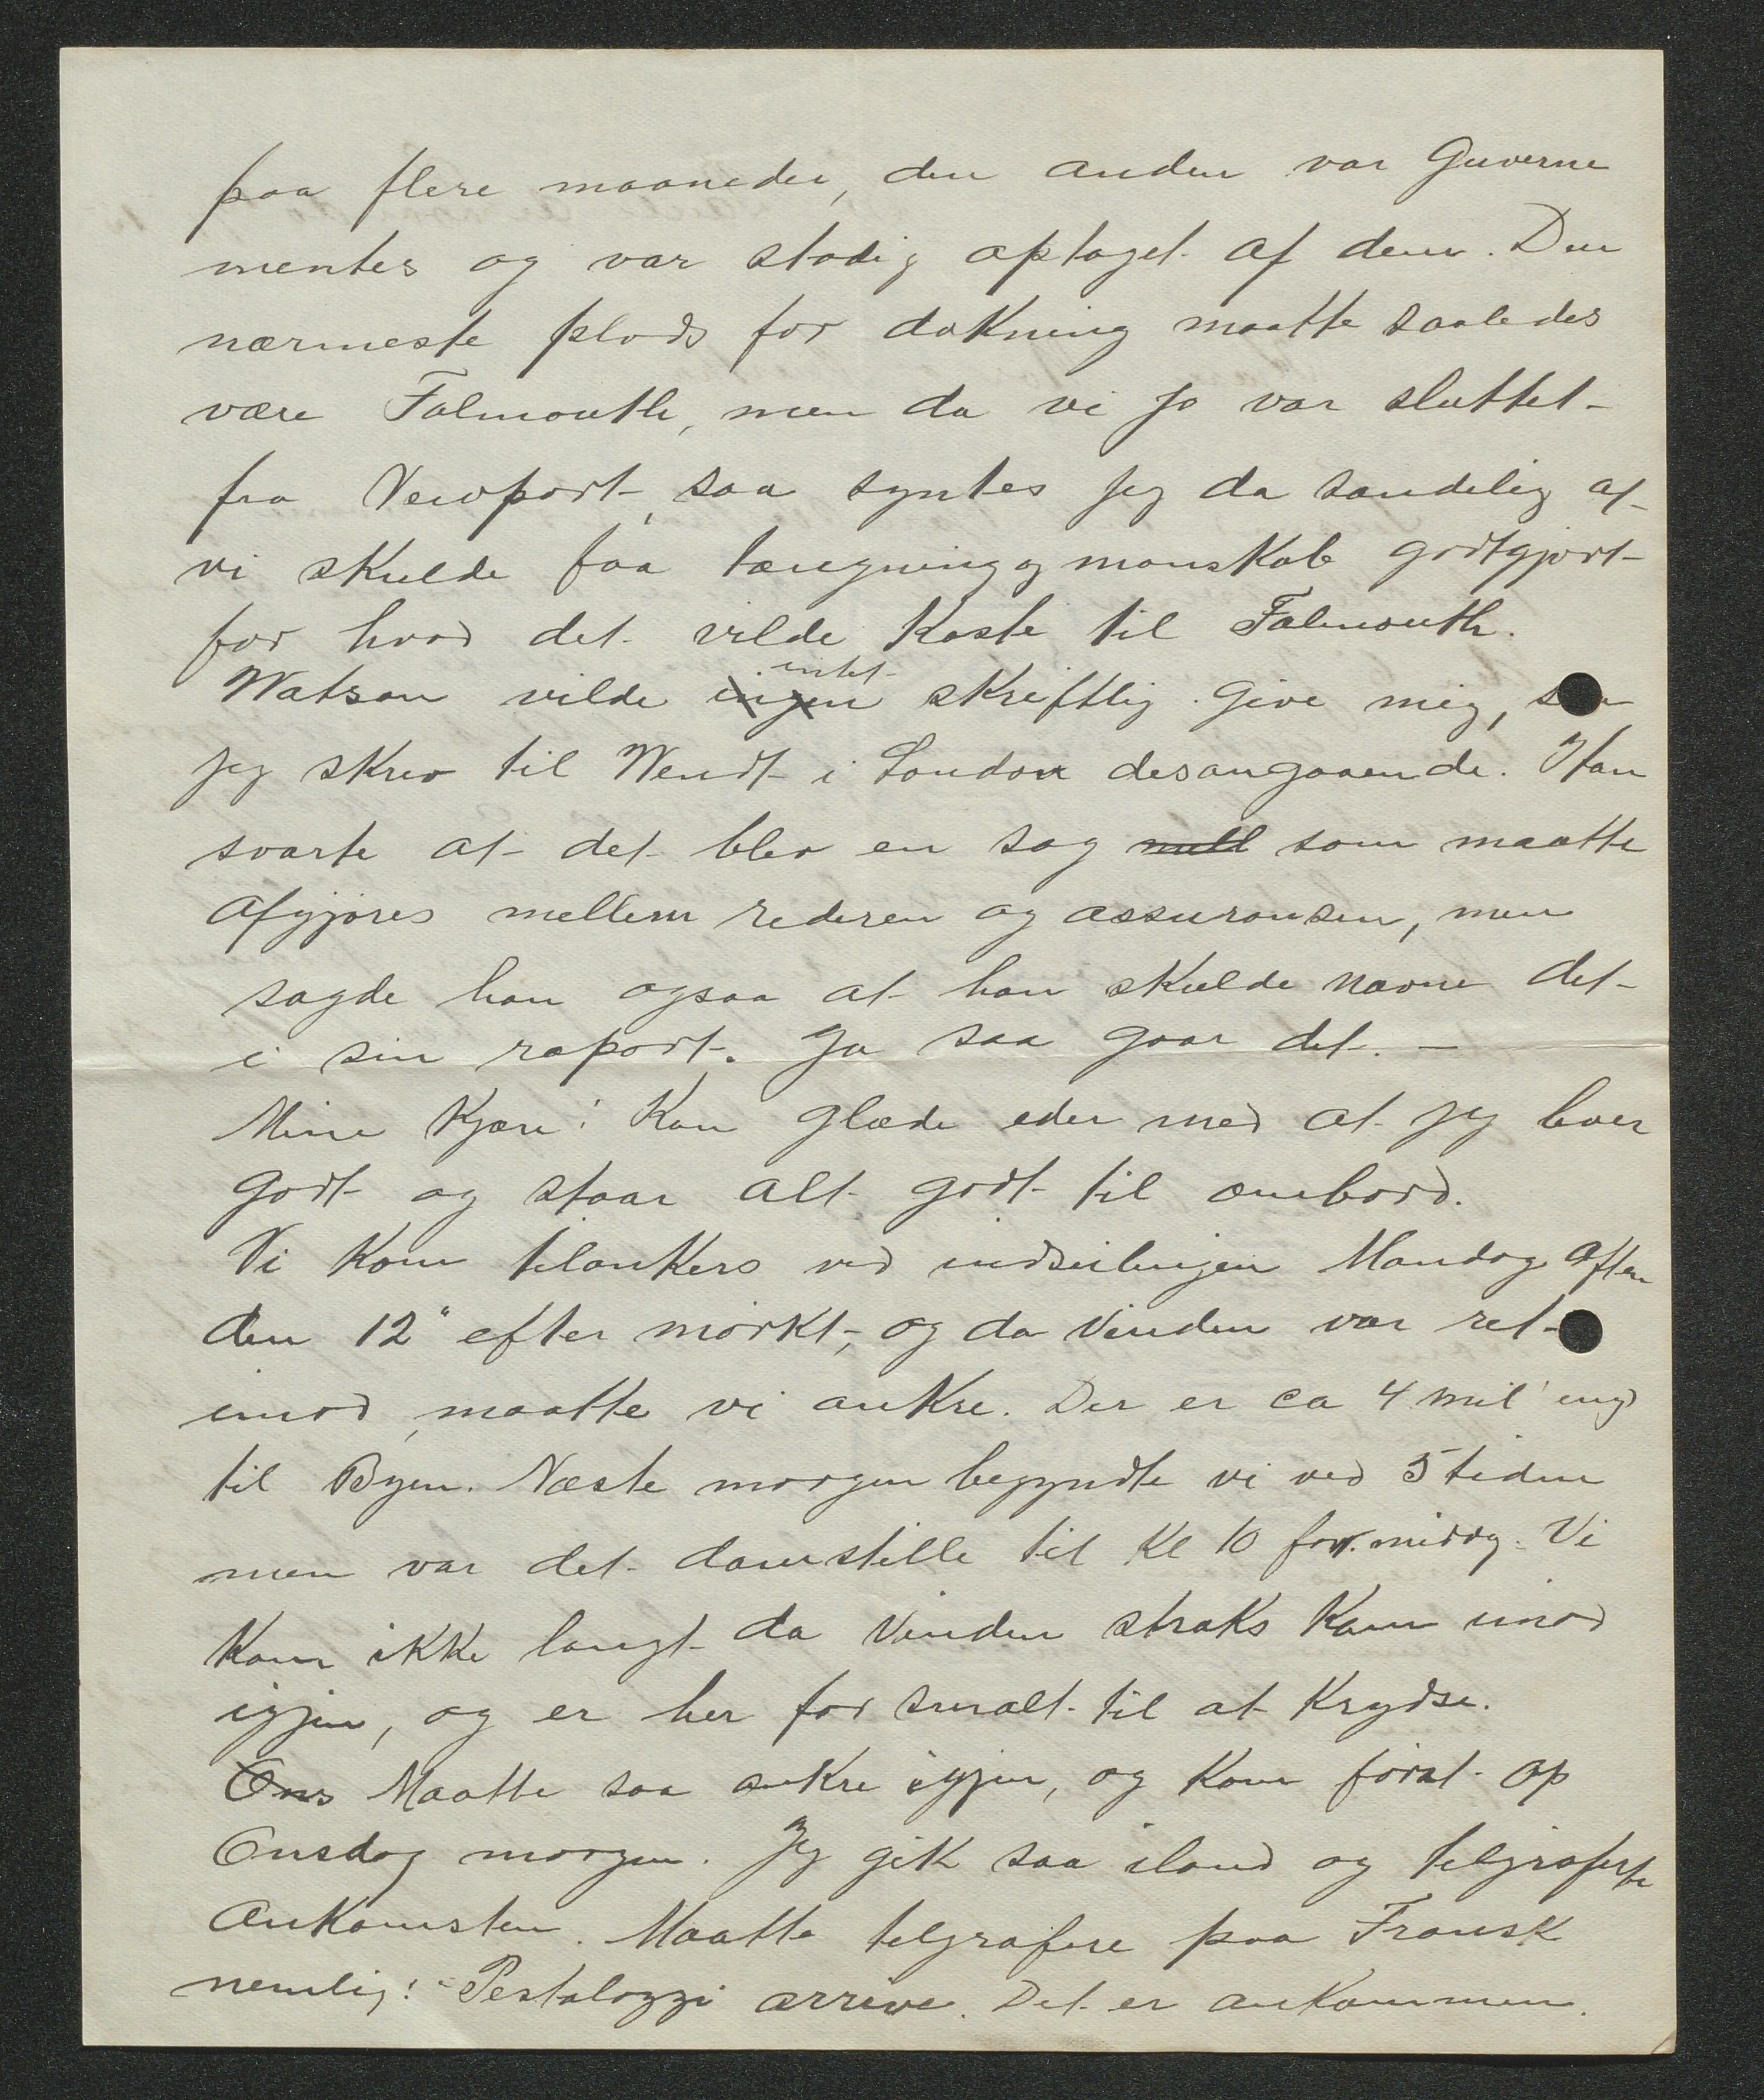 paa flere maaneder, den anden var Guverne
mentes og var stadig optaget af dem. Den
nærmeste plads for dokning maatte saaledes
være Falmouth, men da vi jo var sluttet
fra Newport, saa syntes jeg da sandelig at
vi skulde faa tæregning og manskab godtgjort
for hvad det vilde koste til Falmouth.
Watson vilde ingen intet skriftlig give mig, saa
jeg skrev til Wendt i London desangaaende. Han
svarte at det blev en sag mell som maatte
afgjøres mellem rederen og assuransen, men
sagde han ogsaa at han skulde nævne det
i sin raport. Ja saa gaar det. –
Mine Kjære! Kan glæde eder med at jeg lever
godt og staar alt godt til ombord.
Vi kom tilankers ved indseilingen Mandag aften
den 12" efter mørkt, og da Vinden var ret
imod, maatte vi ankre. Der er ca 4 mil
til Byen. Næste morgen begyndte vi ved 5 tiden
men var det damstille til Kl 10 formiddg. Vi
kom ikke langt da Vinden straks kom imod
igjen, og er her for smalt til at krydse.
Ons Maatte saa ankre igjen, og kom først op
Onsdag morgen. Jeg gik saa iland og telgraferte
Ankomsten. Maatte telgrafere paa Fransk
nemlig: Pestalozzi arrive. Det er ankommen.